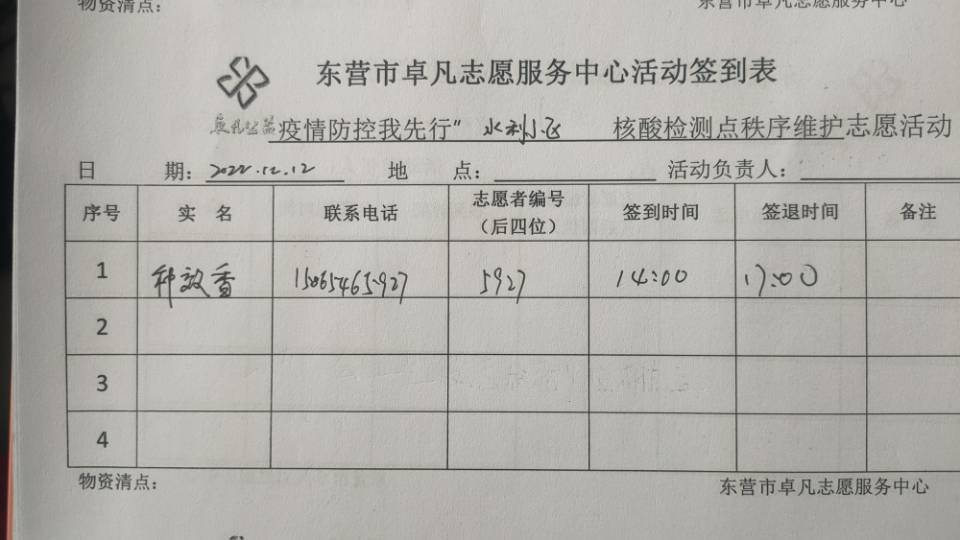 物资清点:
东营市卓凡志愿服务中心
东营市卓凡志愿服务中心活动签到表
卓凡公益 疫情防控我先行" 水利小区 核酸检测点秩序维护志愿活动
日 期: 2022.12.12 地 点: 活动负责人:
序号 实 名 联系电话 志愿者编号(后四位) 签到时间 签退时间 备注
1 种效香 15065465927 5927 14:00 17:00
2
3
4
物资清点:
东营市卓凡志愿服务中心